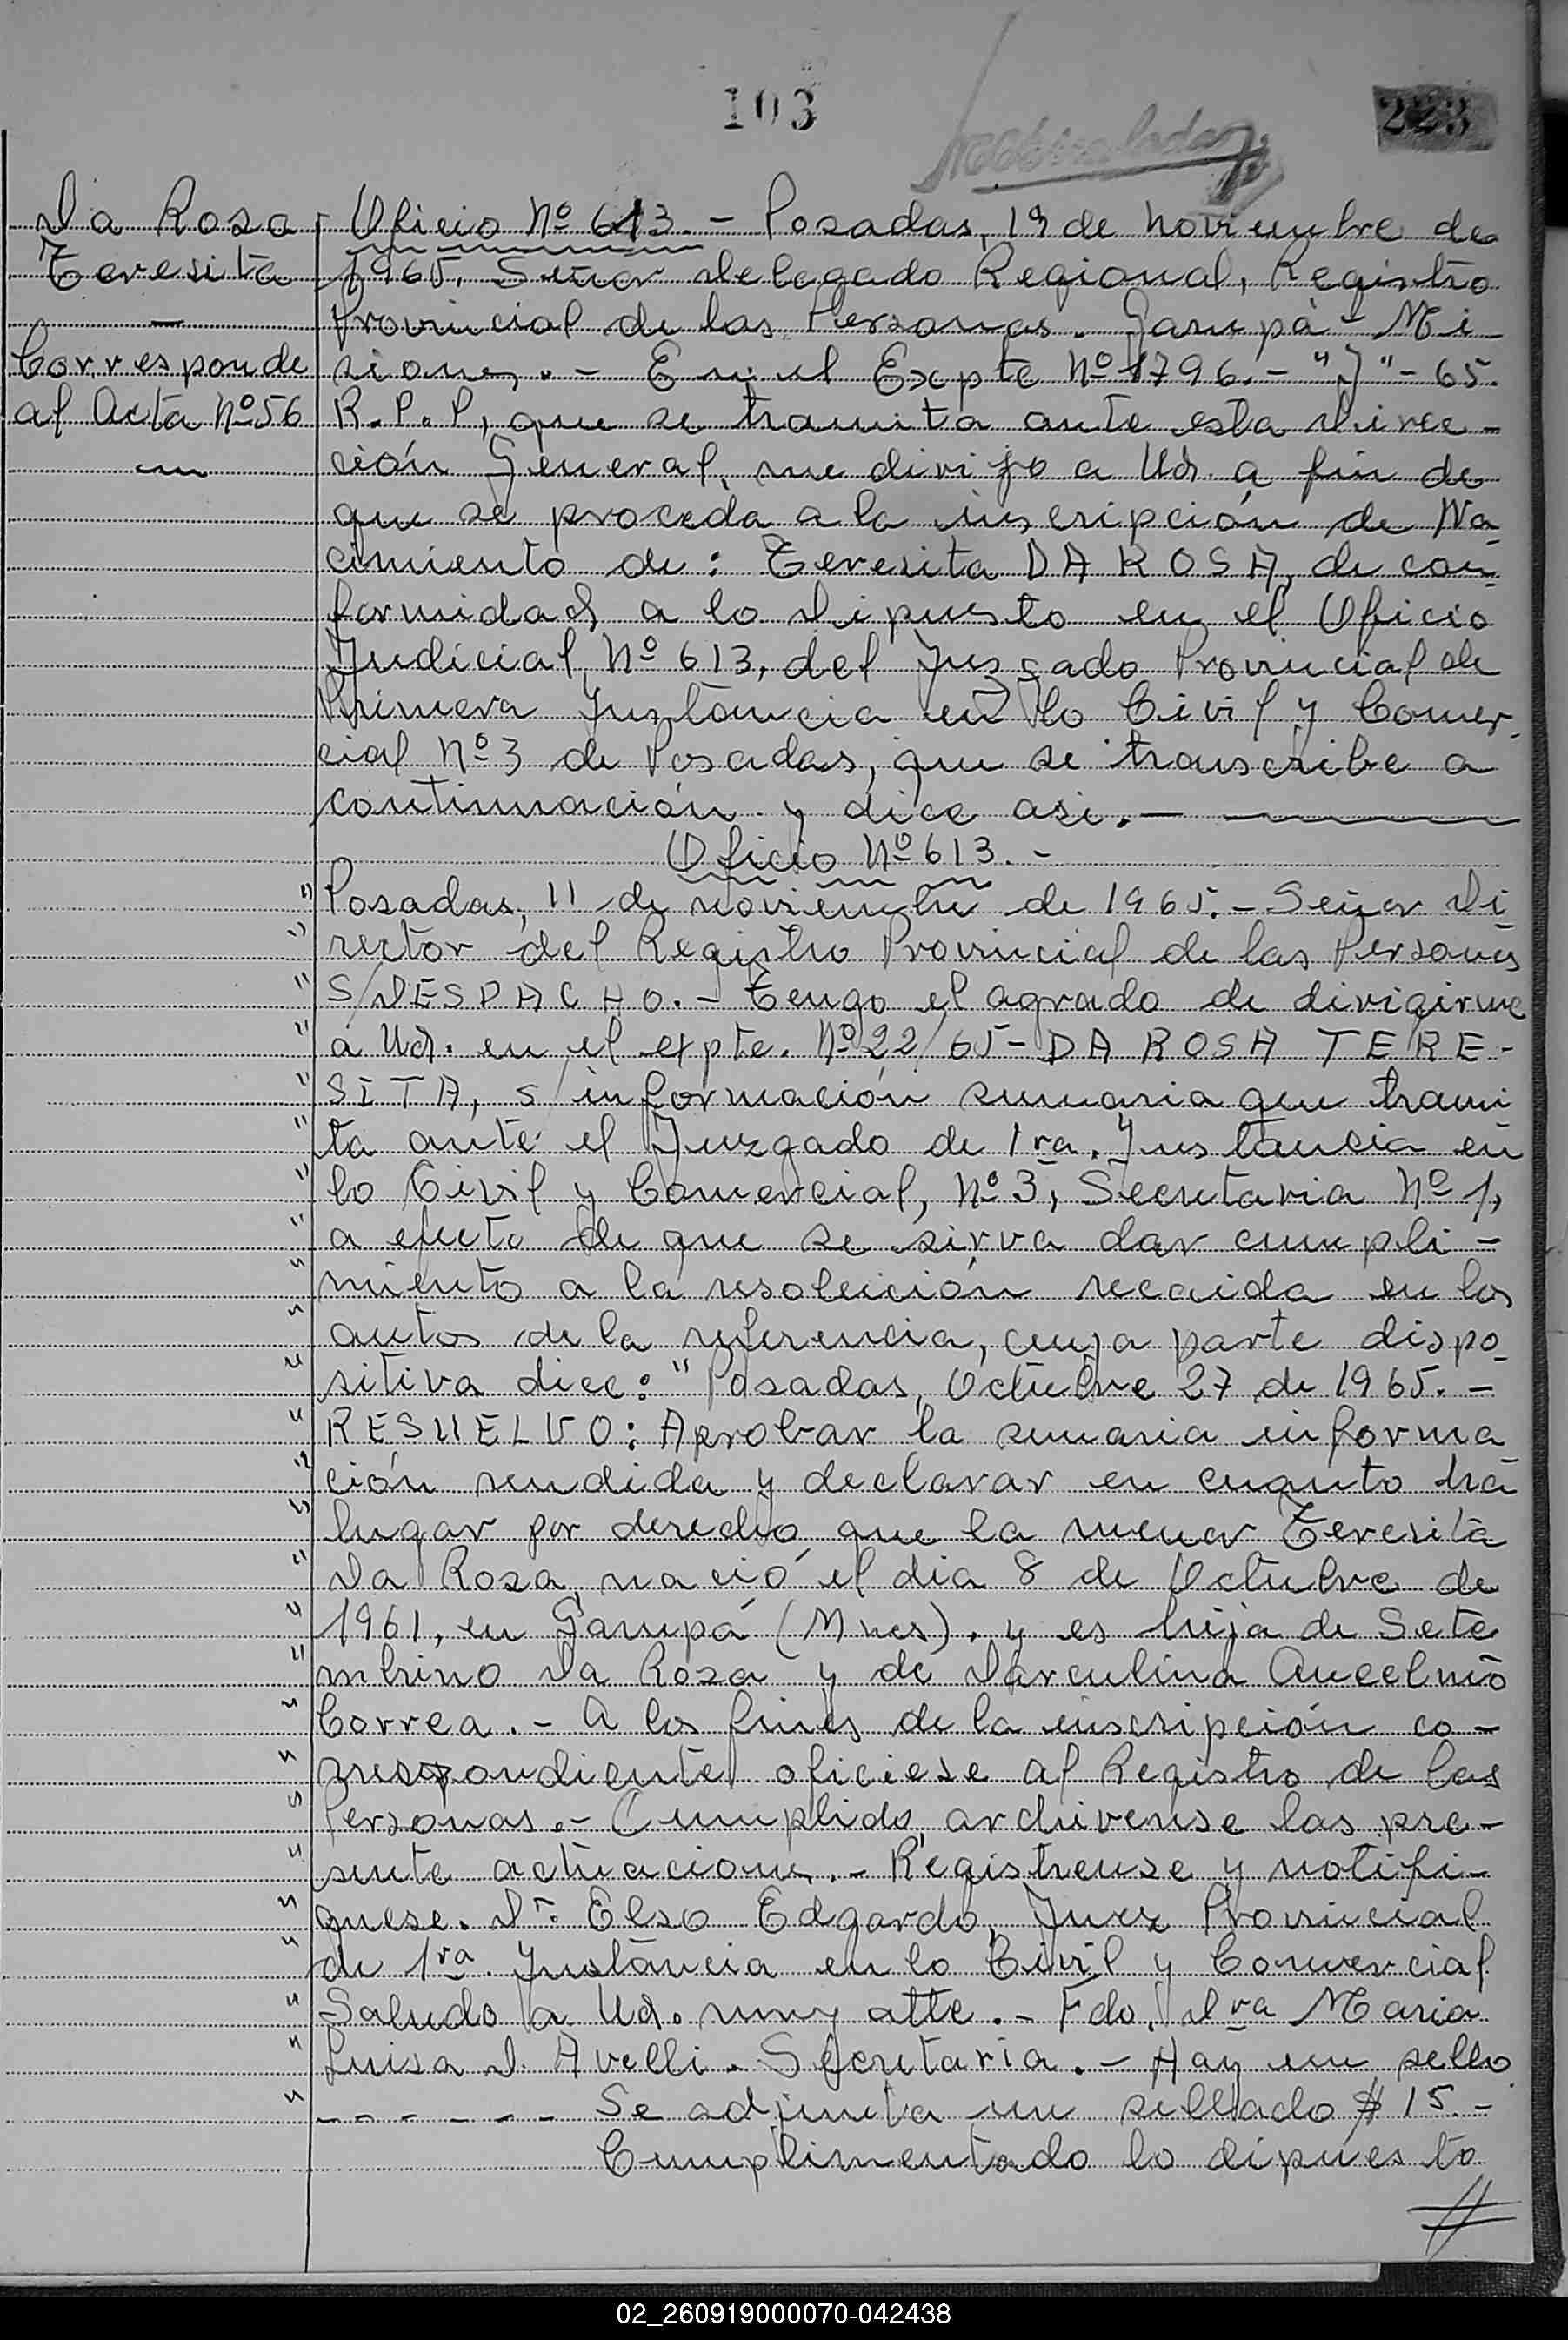 103
223
Da Rosa
Teresita
—
Corresponde
al Acta Nº 56
Oficio Nº 613.- Posadas, 19 de noviembre de
1965. Señor Delegado Regional, Registro
Provincial de las Personas. Garupá - Mi
siones.- En el Expte Nº 1796.- "J"- 65.
R.P.P, que se tramita ante esta Direc-
ción General, me dirijo a Ud. a fin de
que se proceda a la inscripción de Na
cimiento de: Teresita DA ROSA, de con-
formidad a lo dipuesto en el Oficio
Judicial Nº 613, del Juzgado Provincial de
Primera Instancia en lo Civil y Comer-
cial Nº 3 de Posadas, que se transcribe a
continuación y dice asi.-
Oficio Nº 613.-
" Posadas, 11 de noviembre de 1965.- Señor Di
" rector del Registro Provincial de las Personas
" S/DESPACHO.- Tengo el agrado de dirigirme
" a Ud. en el expte. Nº 22/65- DA ROSA TERE-
" SITA, s/ información sumaria que trami
" ta ante el Juzgado de 1ra. Instancia en
" lo Civil y Comercial, Nº 3, Secretaria Nº 1,
" a efecto de que se sirva dar cumpli-
" miento a la resolución recaida en los
" autos de la referencia, cuya parte dispo-
" sitiva dice: "Posadas, Octubre 27 de 1965.-
" RESUELVO: Aprobar la sumaria informa
" ción rendida y declarar en cuanto há
" lugar por derecho que la menor Teresita
" Da Rosa, nació el dia 8 de Octubre de
" 1961, en Garupá (Mnes). y es hija de Sete
" mbrino Da Rosa y de Darculina Ancelmo
" Correa.- A los fines de la inscripción co-
" rrespondiente oficiese al Registro de las
" Personas.- Cumplido, archivense las pre-
" sente actuaciones.- Registrense y notifi-
" quese. Dr. Elso Edgardo, Juez Provincial
" de 1ra. Instancia en lo Civil y Comercial
" Saludo a Ud. muy atte.- Fdo. Dra Maria
" Luisa D. Avelli. Secretaria.- Hay un sello
" - - - - - - Se adjunta un sellado $ 15.-
Cumplimentado lo dipuesto
//
02_260919000070-042438